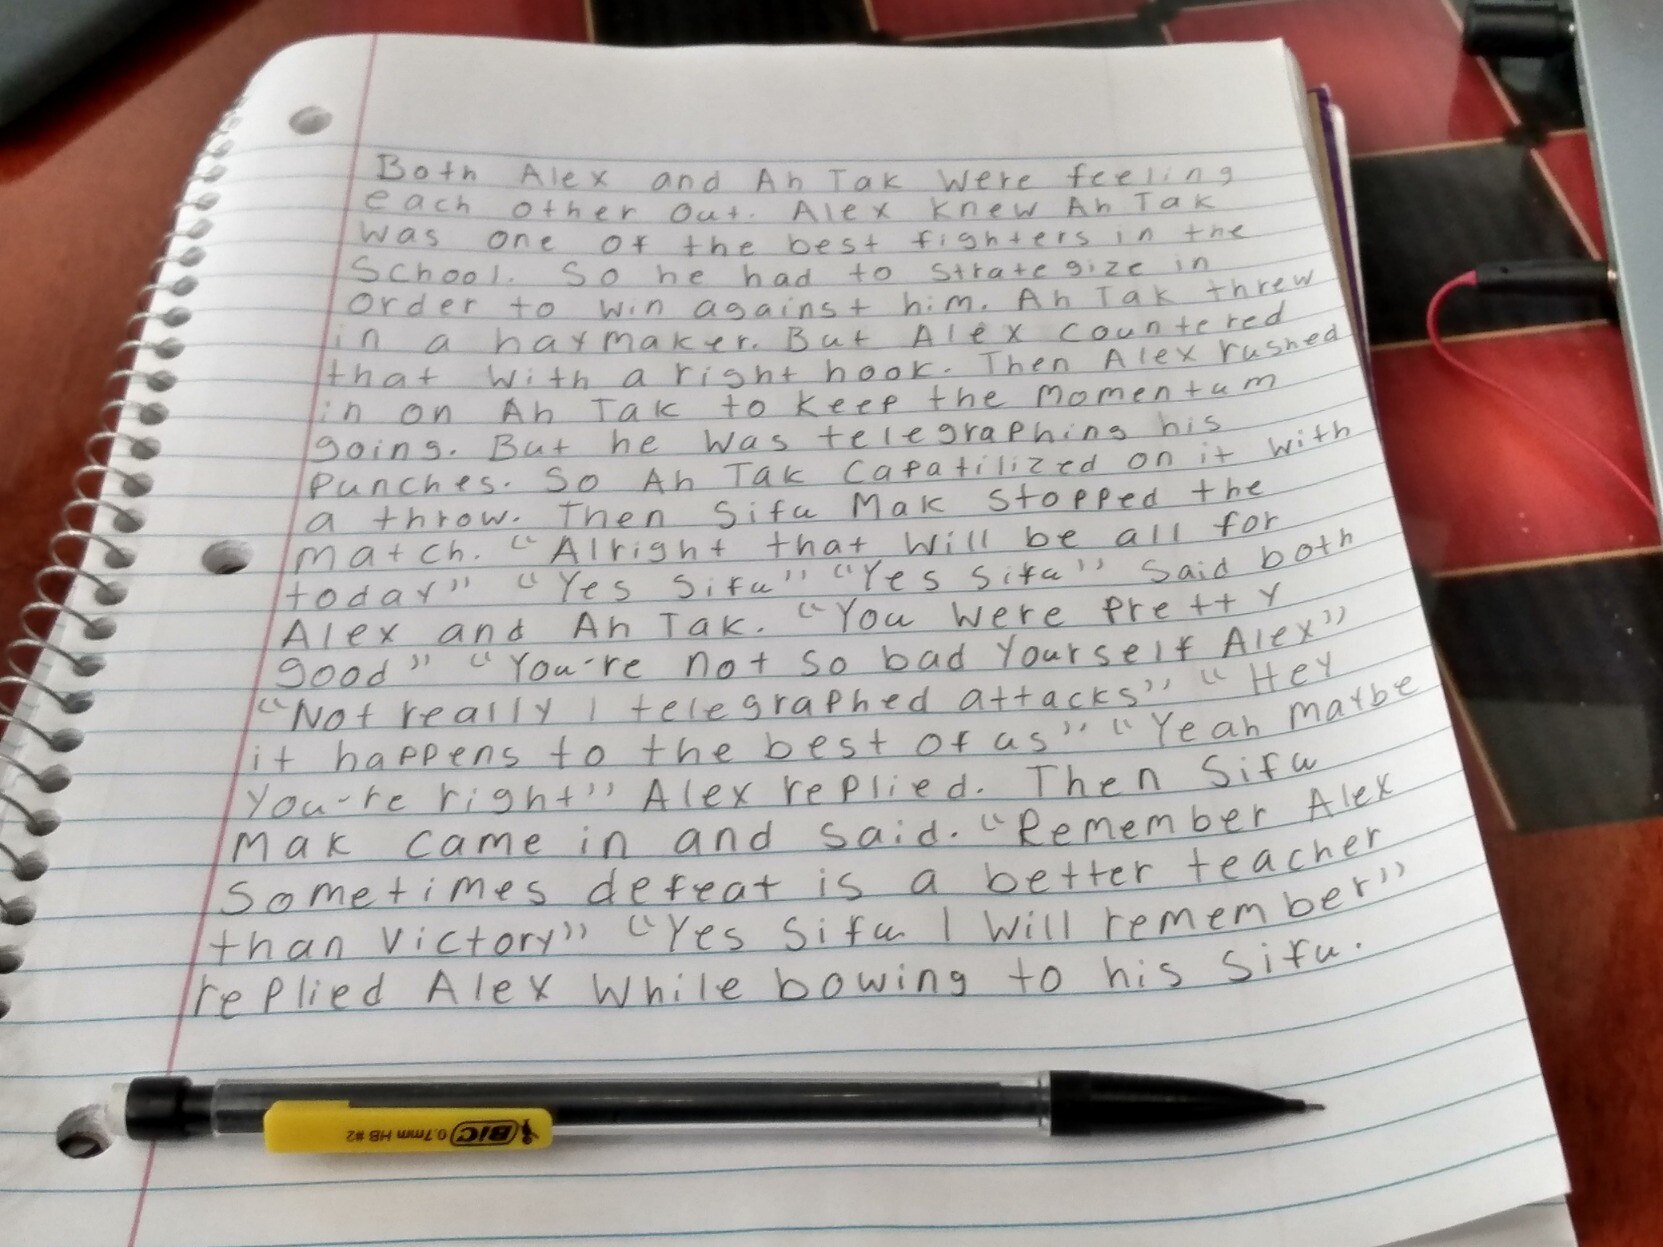 Both Alex and Ah Tak were feeling
each other out. Alex knew Ah Tak
was one of the best fighters in the
School. So he had to strategize in
order to win against him. Ah Tak threw
in a haymaker. But Alex countered
that with a right hook. Then Alex rushed
in on Ah Tak to keep the momentum
going. But he was telegraphing his
punches. So Ah Tak capatilized on it with
a throw. Then Sifu Mak stopped the
match. "Alright that will be all for
today" "Yes Sifu" "Yes Sifu" Said both
Alex and Ah Tak. "You were pretty
good" "You're not so bad yourself Alex"
"Not really I telegraphed attacks" "Hey
it happens to the best of us" "Yeah maybe
you're right" Alex replied. Then Sifu
Mak came in and said. "Remember Alex
Sometimes defeat is a better teacher
than victory" "Yes Sifu I will remember"
replied Alex while bowing to his Sifu.
BIC 0.7mm HB #2